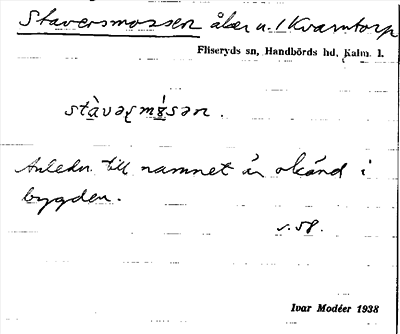 Staversmossen åker u. 1 Kvarntorp
Fliseryds sn, Handbörds hd, Kalm. l.
stàvəʂmɷ́sən.
Anledn. till namnet är okänd i
bygden.
s. 58.
Ivar Modéer 1938